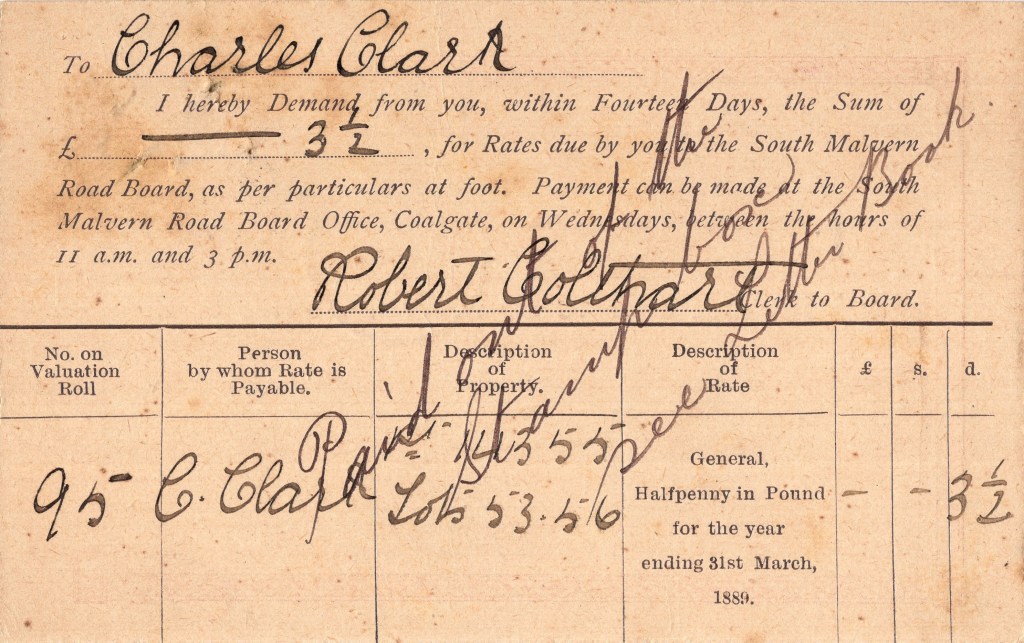 To Charles Clark
I hereby Demand from you, within Fourteen Days, the Sum of
£ 3 ½, for Rates due by you to the South Malvern
Road Board, as per particulars at foot. Payment can be made at the South
Malvern Road Board Office, Coalgate, on Wednesdays, between the hours of
11 a.m. and 3 p.m.
Robert Clerk to Board.
No. on Valuation Roll
Person by whom Rate is Payable.
Description of Property.
Description of Rate
£
s.
d.
95
C. Clark
14355
Lots 53. 56
General,
Halfpenny in Pound
for the year
ending 31st March,
1889.
- - 3 ½
Paid out of the
Stamp box
See Letter Book